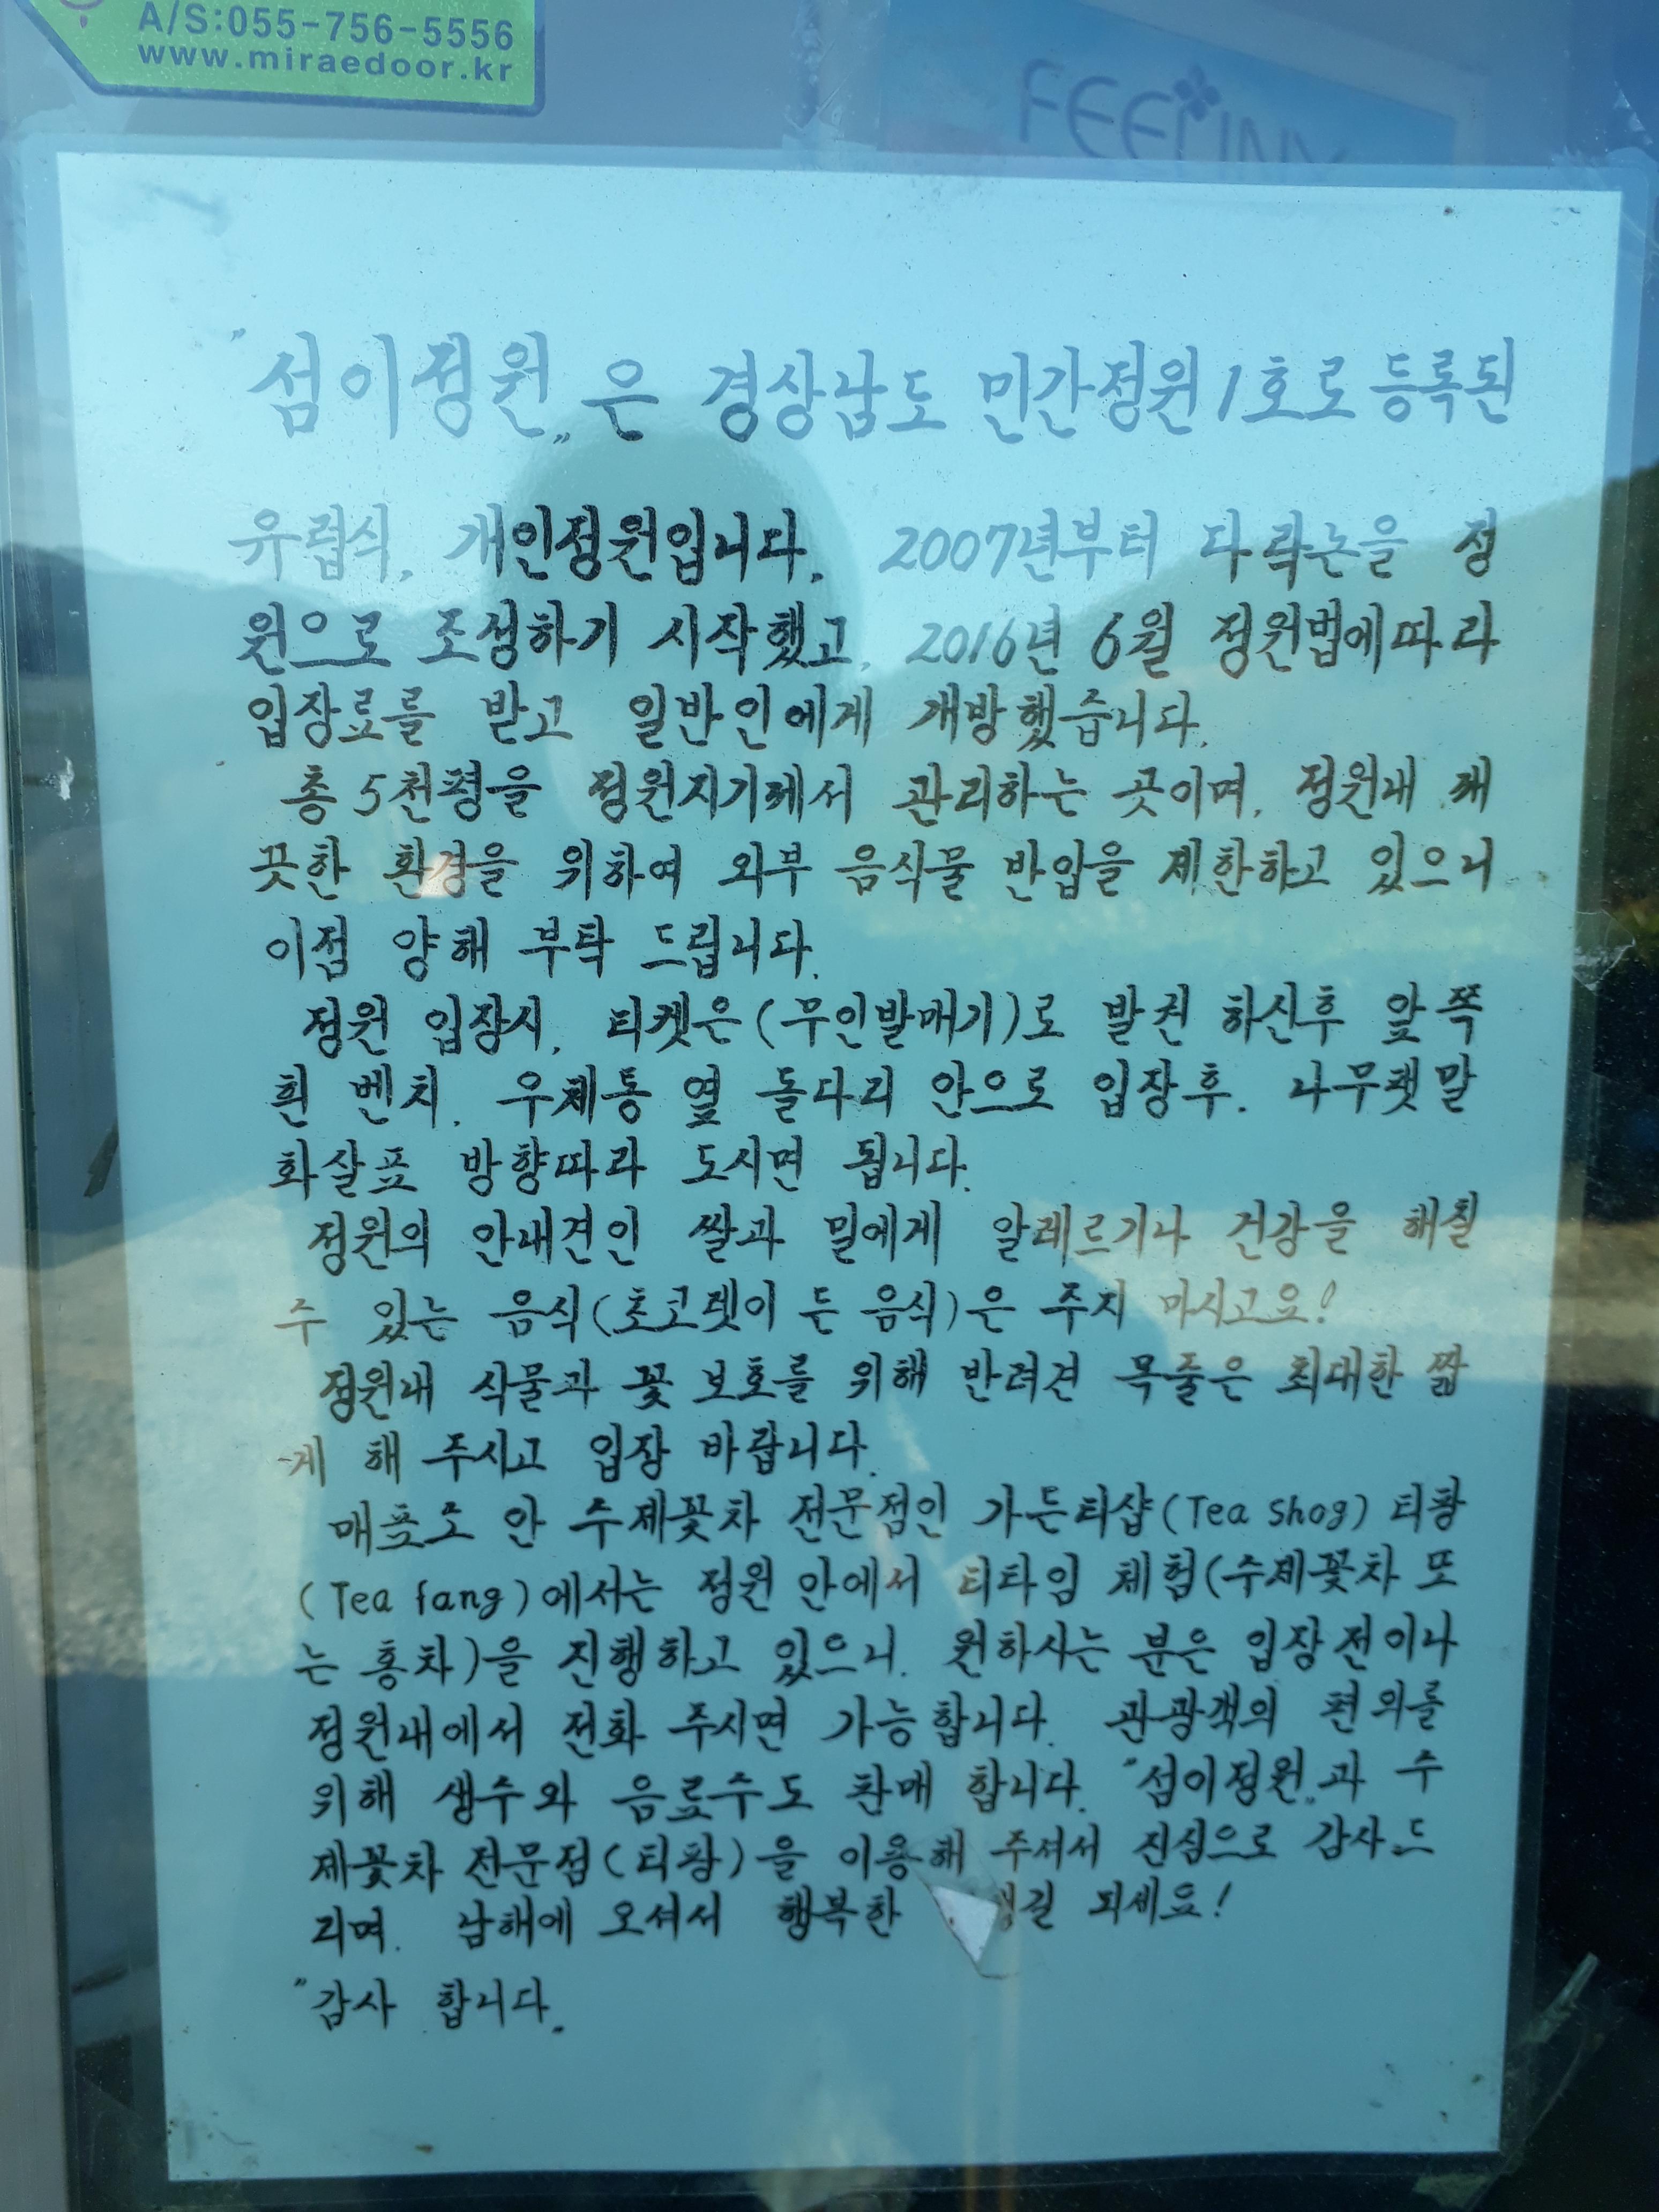 A/S:055-756-5556
www.miraedoor.kr
"섬이정원„은 경상남도 민간정원1호로 등록된
유럽식, 개인정원입니다. 2007년부터 다락논을 정
원으로 조성하기 시작했고, 2016년 6월 정원법에따라
입장료를 받고 일반인에게 개방했습니다.
총 5천평을 정원지기께서 관리하는 곳이며, 정원내 깨
끗한 환경을 위하여 외부 음식물 반입을 제한하고 있으니
이점 양해 부탁 드립니다.
정원 입장시, 티켓은(무인발매기)로 발권 하신후 앞쪽
흰 벤치, 우체통 옆 돌다리 안으로 입장후, 나무팻말
화살표 방향따라 도시면 됩니다.
정원의 안내견인 쌀과 밀에게 알레르기나 건강을 해칠
수 있는 음식(초코렛이 든 음식)은 주지 마시고요!
정원내 식물과 꽃 보호를 위해 반려견 목줄은 최대한 짧
게 해 주시고 입장 바랍니다.
매표소 안 수제꽃차 전문점인 가든티샵(Tea Shog) 티팡
(Tea fang)에서는 정원 안에서 티타임 체험(수제꽃차 또
는 홍차)을 진행하고 있으니, 원하시는 분은 입장전이나
정원내에서 전화 주시면 가능합니다. 관광객의 편의를
위해 생수와 음료수도 판매 합니다. "섬이정원„과 수
제꽃차 전문점(티팡)을 이용해 주셔서 진심으로 감사드
리며, 남해에 오셔서 행복한 되세요!
"감사 합니다„